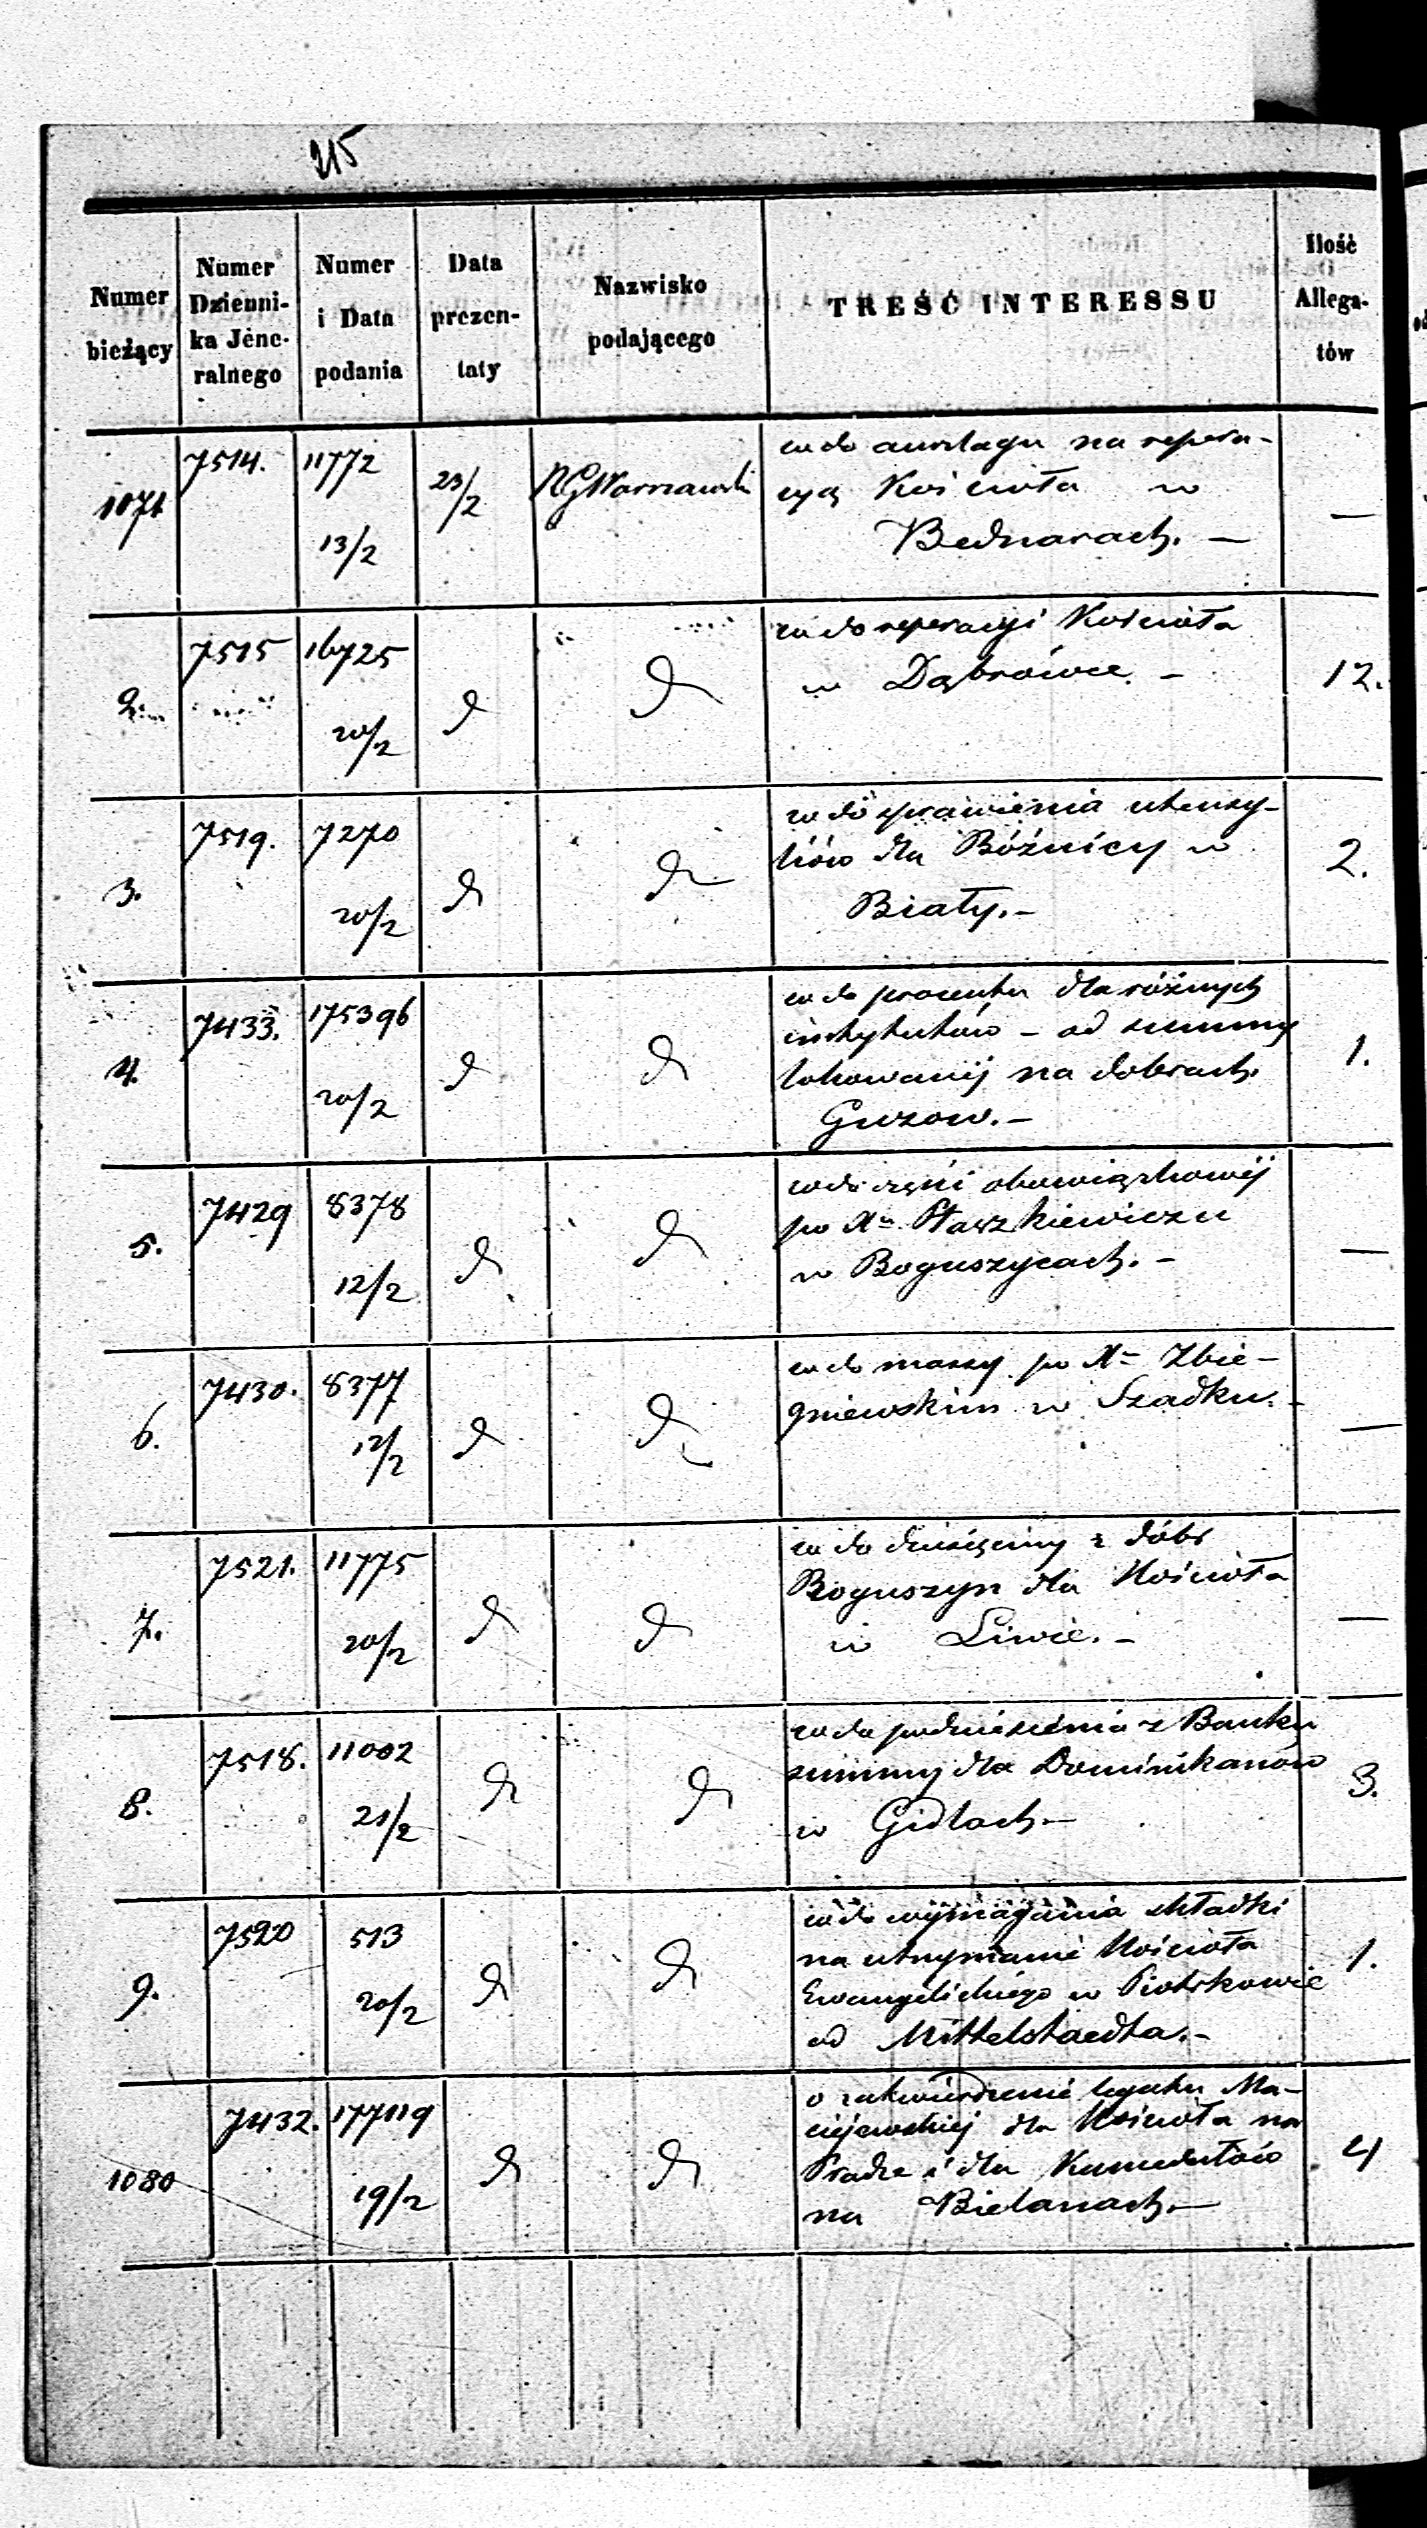 215
Numer bieżący | Numer Dziennika Jeneralnego | Numer i Data podania | Data prezentaty | Nazwisko podającego | TREŚĆ INTERESSU | Ilość Allegatów
1071 | 7514. | 11772 13/2 | 23/2 | RGWarszawski | co do anszlagu na repera-
cyą Kościoła w
Bednarach. — | —
2. | 7515 | 16725 20/2 | d | d | co do reperacyi Kościoła
w Dąbrówce. — | 12.
3. | 7519. | 7270 20/2 | d | d | co do sprawienia utensy-
liów dla Bóżnicy w
Biały. — | 2.
4. | 7433. | 175396 20/2 | d | d | co do procentu dla różnych
instytutów — od summy
lokowanéj na dobrach
Guzow. — | 1.
5. | 7429 | 8378 12/2 | d | d | co do części obowiązkowéj
po Xu Staszkiewiczu
w Boguszycach. — | —
6. | 7430. | 8377 12/2 | d | d | co do massy po X= Zbie-
gniewskim w Szadku. — | —
7. | 7521. | 11775 20/2 | d | d | co do dziesięciny z dóbr
Boguszyn dla Kościoła
w Liwie. — | —
8. | 7518. | 11002 21/2 | d | d | co do podniesienia z Banku
summy dla Dominikanów
w Gidlach — | 3.
9. | 7520 | 513 20/2 | d | d | co do wymagania składki
na utrzymanie Kościoła
Ewangelickiego w Piotrkowie
od Mittelstaedta. — | 1.
1080 | 7432. | 177119 19/2 | d | d | o zatwierdzenie legatu Ma-
ciejewskiej dla Kościoła na
Pradze i dla Kamedułów
na Bielanach. — | 4